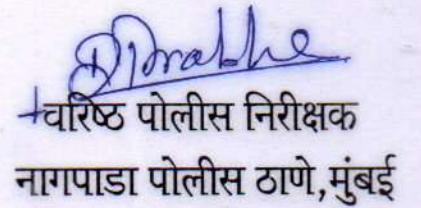 वरिष्ठ पोलीस निरीक्षक
नागपाडा पोलीस ठाणे,मुंबई